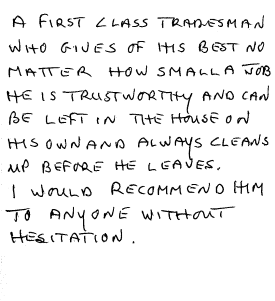 A FIRST CLASS TRADESMAN
WHO GIVES OF HIS BEST NO
MATTER HOW SMALL A JOB
HE IS TRUSTWORTHY AND CAN
BE LEFT IN THE HOUSE ON
HIS OWN AND ALWAYS CLEANS
UP BEFORE HE LEAVES.
I WOULD RECOMMEND HIM
TO ANYONE WITHOUT
HESITATION.